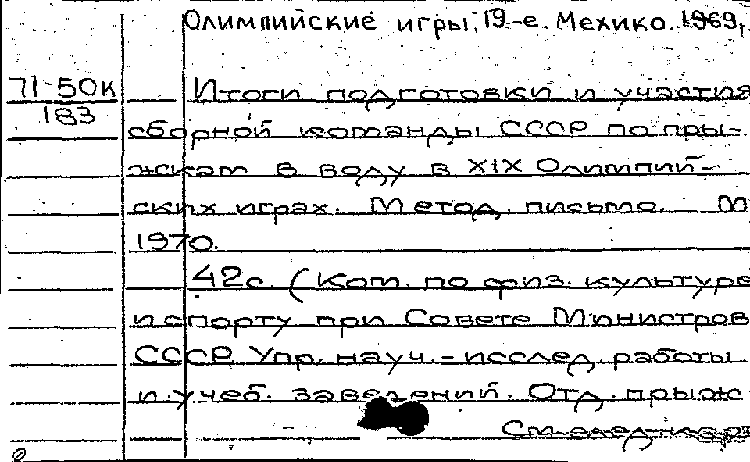 Олимпийские игры, 19-е. Мехико. 1969,
71-50к
183
Итоги подготовки и участия
сборной команды СССР по пры-
жкам в воду в XIX Олимпий-
ских играх. Метод. письмо. М
1970.
42с. (Ком. по физ. культуре
и спорту при Совете Министров
СССР Упр. науч.-исслед. работы
и учеб. заведений. Отд. прыж
См след